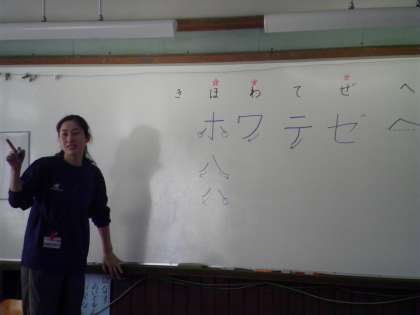 き ほ わ て ぜ へ
ホ ワ テ ゼ ヘ
ハ
ハ